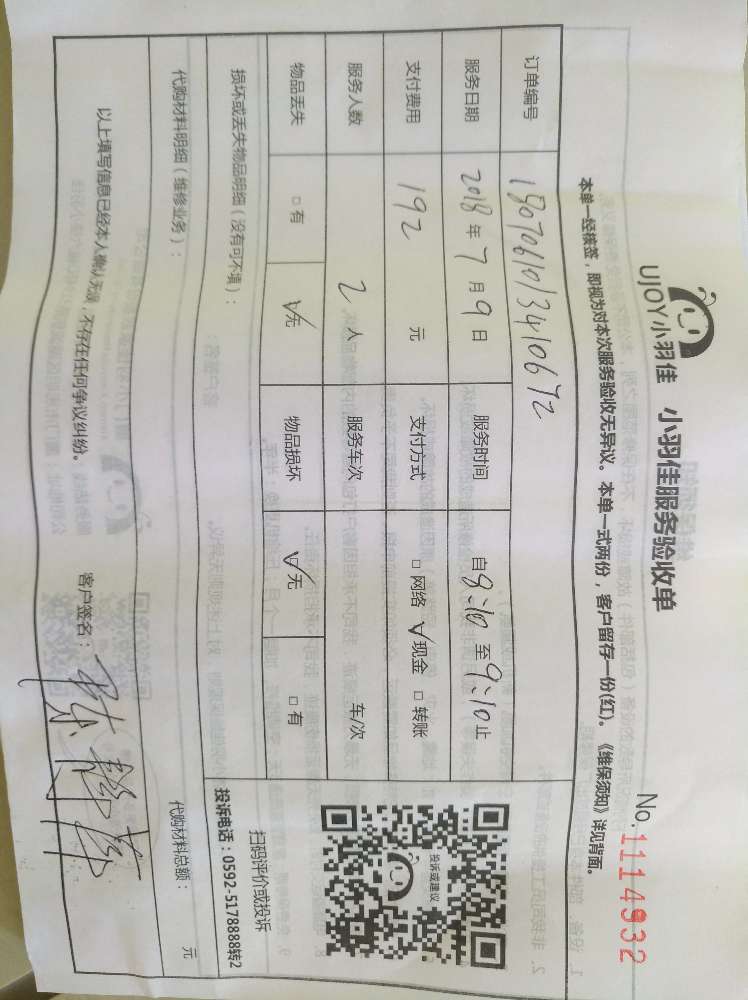 UJOY小羽佳 小羽佳服务验收单
No.1114932
本单一经核签，即视为对本次服务验收无异议。本单一式两份，客户留存一份(红)。《维保须知》详见背面。
订单编号 180706101341067Z
服务日期 2018年7月9日 服务时间 自8:10至9:10止
支付费用 192 元 支付方式 □网络 √现金 □转账
服务人数 2人 服务车次 车/次
物品丢失 □有 √无 物品损坏 √无 □有
投诉或建议
扫码评价或投诉
投诉电话：0592-5178888转2
损坏或丢失物品明细（没有可不填）：
代购材料明细（维修业务）： 代购材料总额： 元
以上填写信息已经本人确认无误，不存在任何争议纠纷。 客户签名：